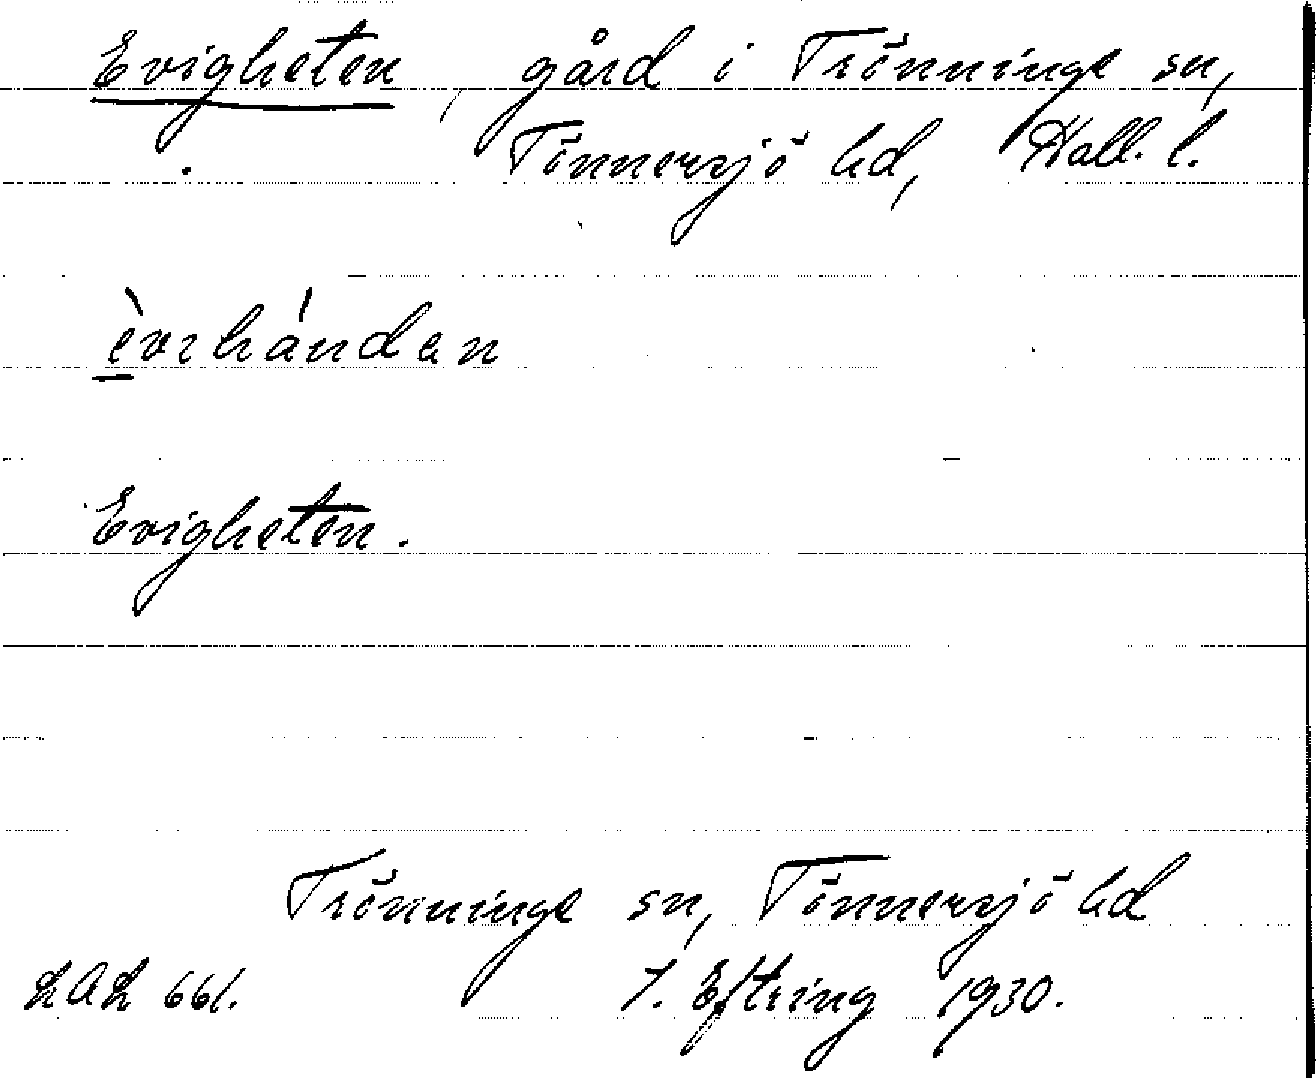 Evigheten, gård i Trönninge sn,
Tönnersjö hd, Hall. l.
èvrhándan
Evigheten.
Trönninge sn, Tönnersjö hd
LAL 661. J. Eftring 1930.